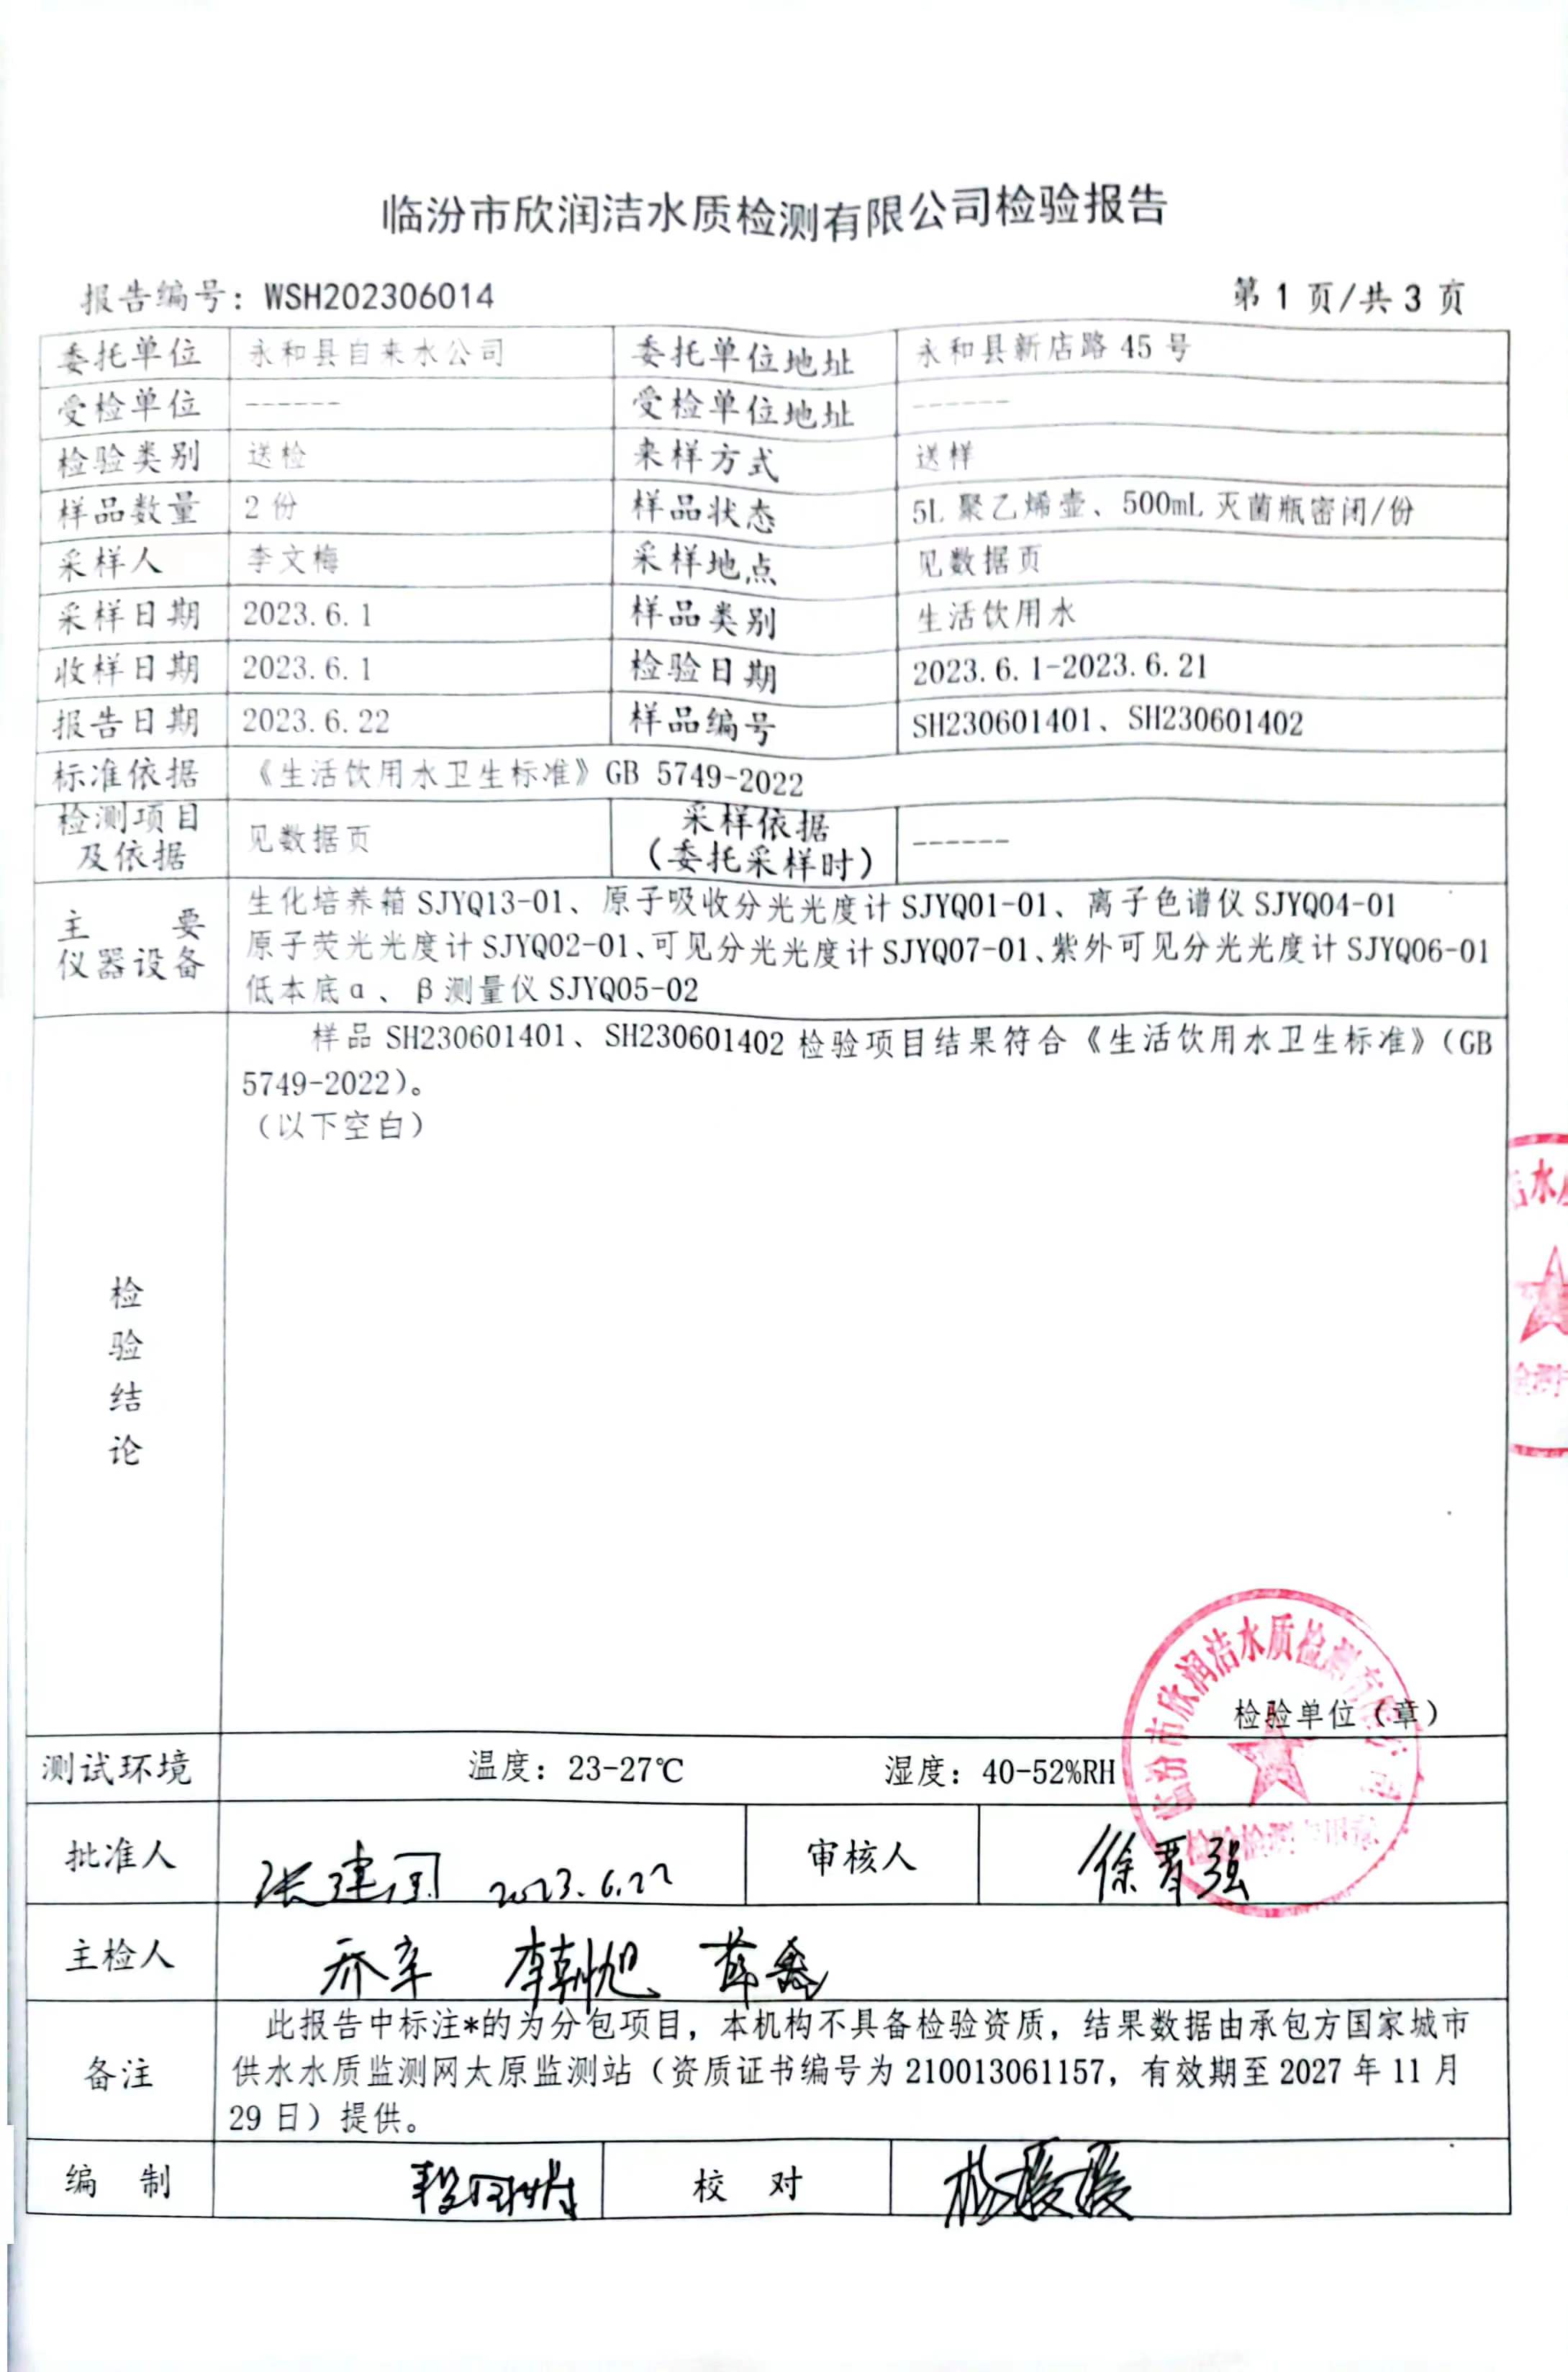 临汾市欣润洁水质检测有限公司检验报告
报告编号：WSH202306014
第 1 页/共 3 页
委托单位 永和县自来水公司 委托单位地址 永和县新店路 45 号
受检单位 ------ 受检单位地址 ------
检验类别 送检 来样方式 送样
样品数量 2 份 样品状态 5L 聚乙烯壶、500mL 灭菌瓶密闭/份
采样人 李文梅 采样地点 见数据页
采样日期 2023.6.1 样品类别 生活饮用水
收样日期 2023.6.1 检验日期 2023.6.1-2023.6.21
报告日期 2023.6.22 样品编号 SH230601401、SH230601402
标准依据 《生活饮用水卫生标准》GB 5749-2022
检测项目
及依据
见数据页
采样依据
（委托采样时）
------
主 要
仪器设备
生化培养箱 SJYQ13-01、原子吸收分光光度计 SJYQ01-01、离子色谱仪 SJYQ04-01
原子荧光光度计 SJYQ02-01、可见分光光度计 SJYQ07-01、紫外可见分光光度计 SJYQ06-01
低本底α、β测量仪 SJYQ05-02
样品 SH230601401、SH230601402 检验项目结果符合《生活饮用水卫生标准》（GB
5749-2022）。
（以下空白）
检
验
结
论
水质
检测
临汾市欣润洁水质检测有限公司
检验检测专用章
检验单位（章）
测试环境 温度：23-27℃ 湿度：40-52%RH
批准人 2023.6.22 审核人 徐晋强
主检人 乔辛
备注
此报告中标注*的为分包项目，本机构不具备检验资质，结果数据由承包方国家城市
供水水质监测网太原监测站（资质证书编号为 210013061157，有效期至 2027 年 11 月
29 日）提供。
编 制 校 对 杨媛媛